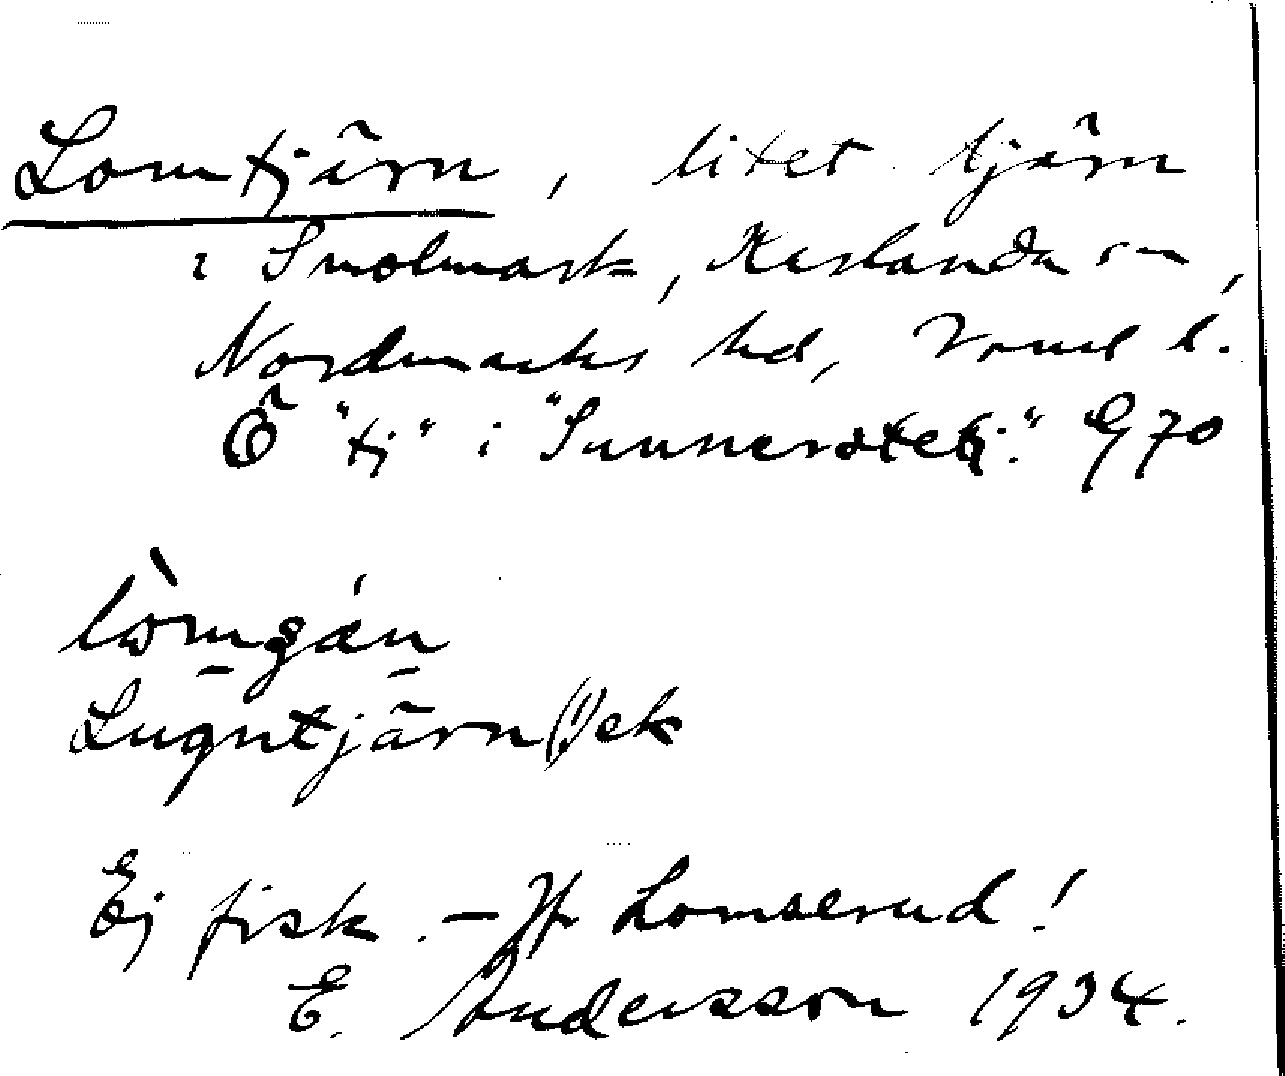 Lomtjärn, litet tjärn
i Smolmark, Karlanda sn,
Nordmarks hd, Vrml l.
Ö "tj" i "Sunnerstetj." G 70
lömgǽn
Lugntjärn(!) ek
Ej fisk. – Jfr Lomserud!
E. Andersson 1934.